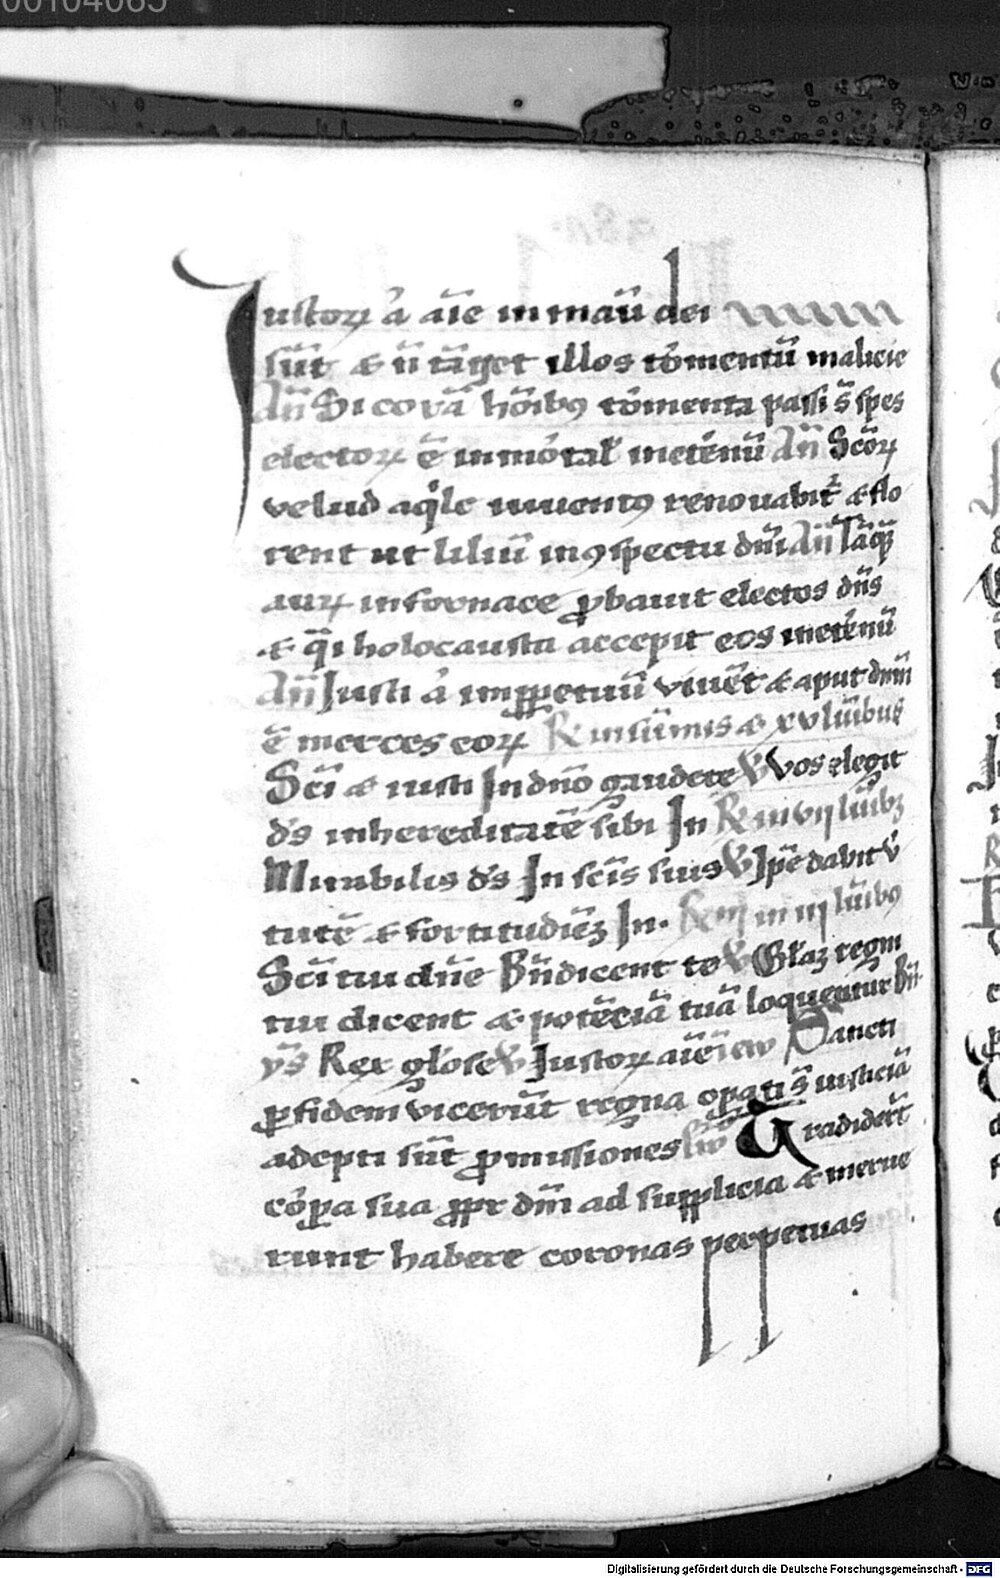 00104065
Iustoꝝ a᷑ aīe in manū dei
sūt ⁊ n̄ tāget illos tormentū malicie
An̄ Si corā hoīb9 tormenta passi s̄ spes
electoꝝ ē inmortal' ineternū An̄ Scōꝝ
velud aq̓le iuuent9 renouabit᷑ ⁊ flo
rent ut liliū in ꝯspectu dn̄i An̄ Tāq̄
auꝝ in fornace ꝓbauit electos dn̄s
⁊ q̄i holocausta accepit eos ineternū
An̄ Iusti a᷑ imꝑpetuū viuēt ⁊ aput dn̄m
ē merces eoꝝ R in sūmis ⁊ xv lr̄ibus
Sc̄i ⁊ iusti In dn̄o gaudete V Vos elegit
ds̄ in hereditatē sibi In R in vij lr̄ibꝫ
Mirabilis ds̄ In sc̄is suis V Ip̄e dabit v̓
tutē ⁊ fortitudīeꝫ In. Rem in iij lr̄ib9
Sc̄i tui dn̄e Bn̄dicent te V Gl'aꝫ regni
tui dicent ⁊ potēciā tuā loquentur Bn̄
ys̄ Rex gl'ose V Iustoꝝ aīe in ew Sancti
ꝑ fidem vicerūt regna oꝑati s̄ iusticiā
adepti sūt ꝓmissiones Tradider̄t
corꝑa sua ꝓpt̓ dn̄m ad supplicia ⁊ merue
runt habere coronas perpetuas
Digitalisierung gefördert durch die Deutsche Forschungsgemeinschaft - DFG